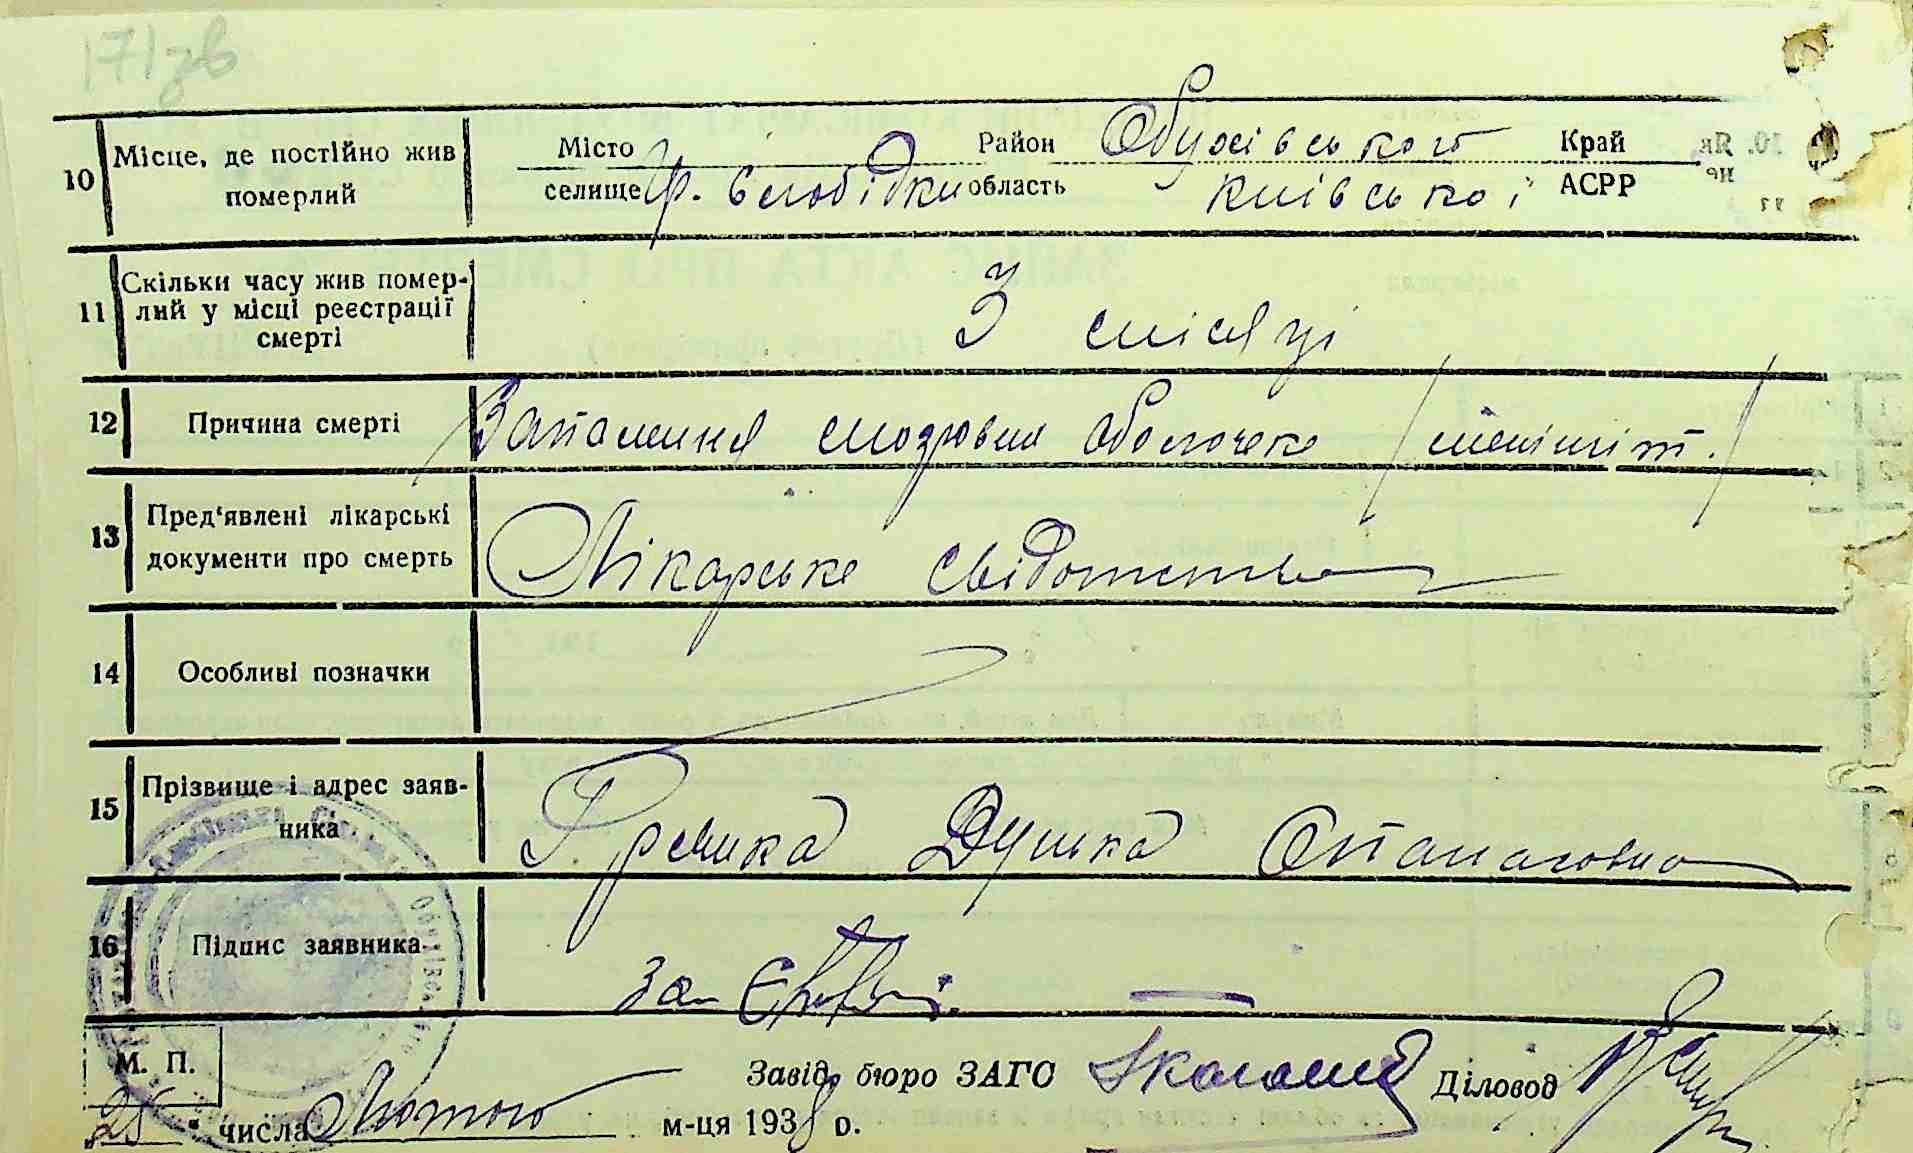 171зв
10 Місце, де постійно жив померлий
Місто селище Гр. Слобідки
Район Обухівського
область Київської
Край АСРР
11 Скільки часу жив помер-
лий у місці реєстрації
смерті
3 місяці
12 Причина смерті
Запалення мозрових оболочек /менінгіт./
13 Пред'явлені лікарські
документи про смерть
Лікарське свідотство
14 Особливі позначки
15 Прізвище і адрес заяв-
ника
Гремика Дунька Опанасовна
16 Підпис заявника
за
М. П.
25 " числа Лютого м-ця 1938 р.
Завід. бюро ЗАГС
Діловод